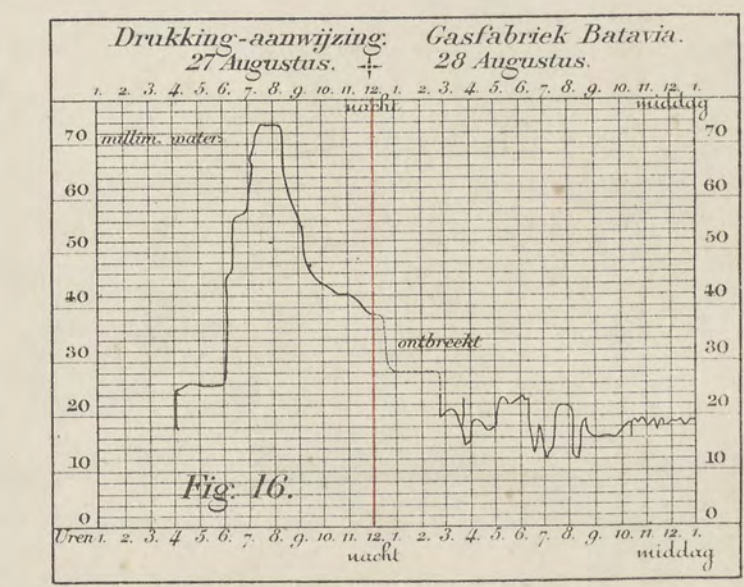 Drukking-aanwijzing. Gasfabriek Batavia.
27 Augustus. 28 Augustus.
1. 2. 3. 4. 5. 6. 7. 8. 9. 10. 11. 12. 1. 2. 3. 4. 5. 6. 7. 8. 9. 10. 11. 12. 1.
nacht middag
70 millim. water. 70
60 60
50 50
40 40
ontbreekt
30 30
20 20
10 10
Fig. 16.
0 0
Uren 1. 2. 3. 4. 5. 6. 7. 8. 9. 10. 11. 12. 1. 2. 3. 4. 5. 6. 7. 8. 9. 10. 11. 12. 1.
nacht middag